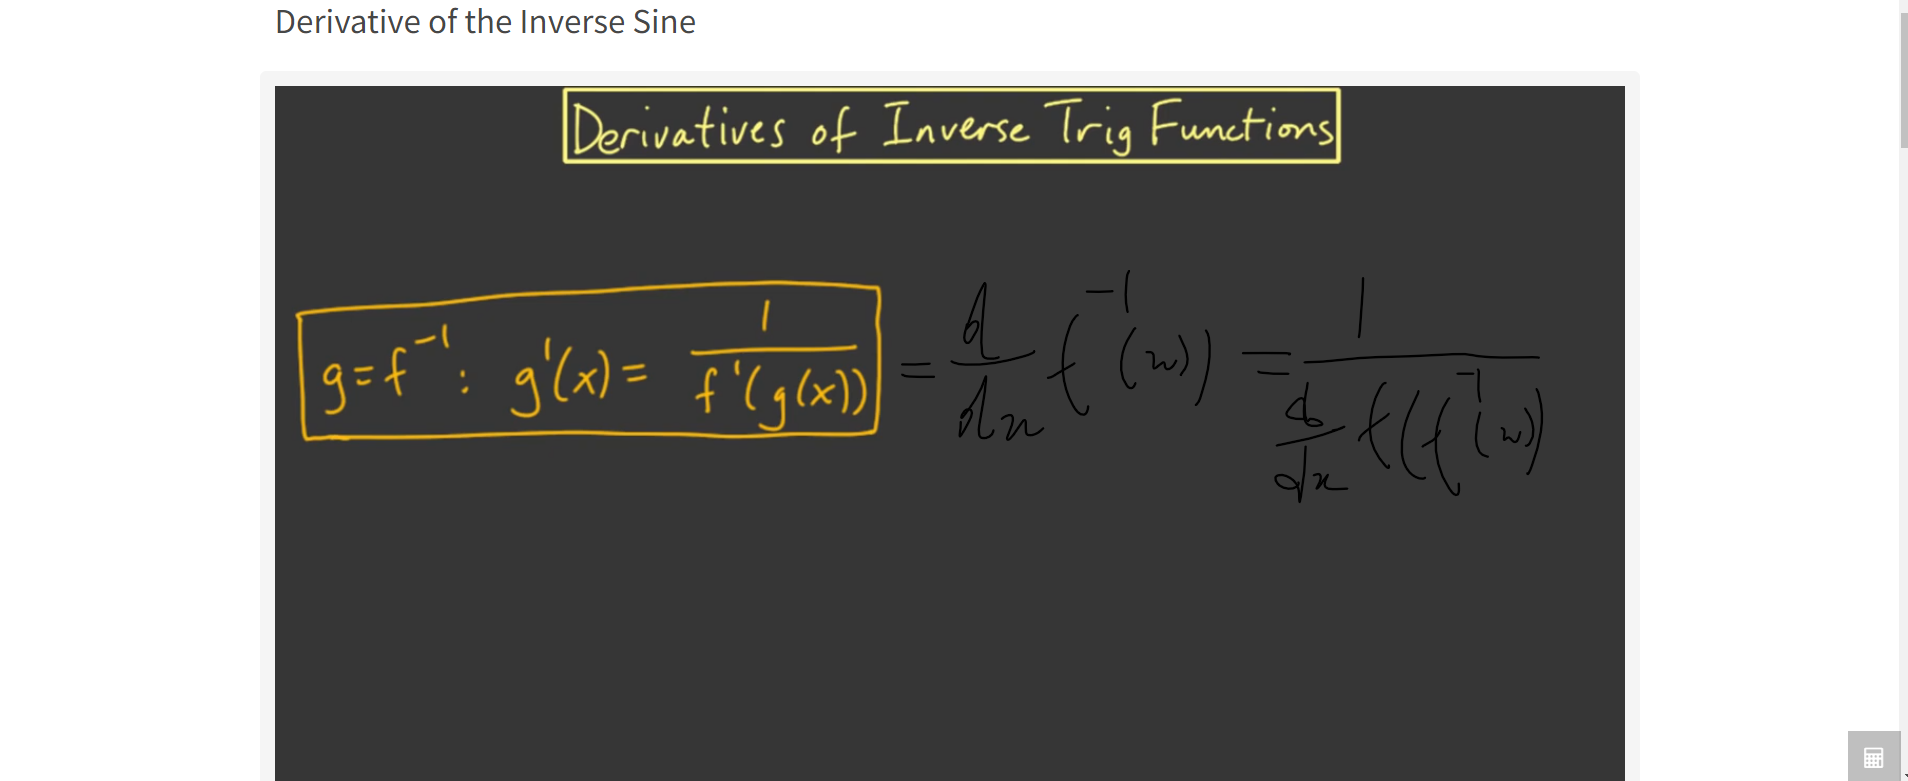 Derivative of the Inverse Sine
Derivatives of Inverse Trig Functions
g = f⁻¹ : g'(x) = 1 / f'(g(x)) = d/dx f⁻¹(x)) = 1 / d/dx f((f⁻¹(x))